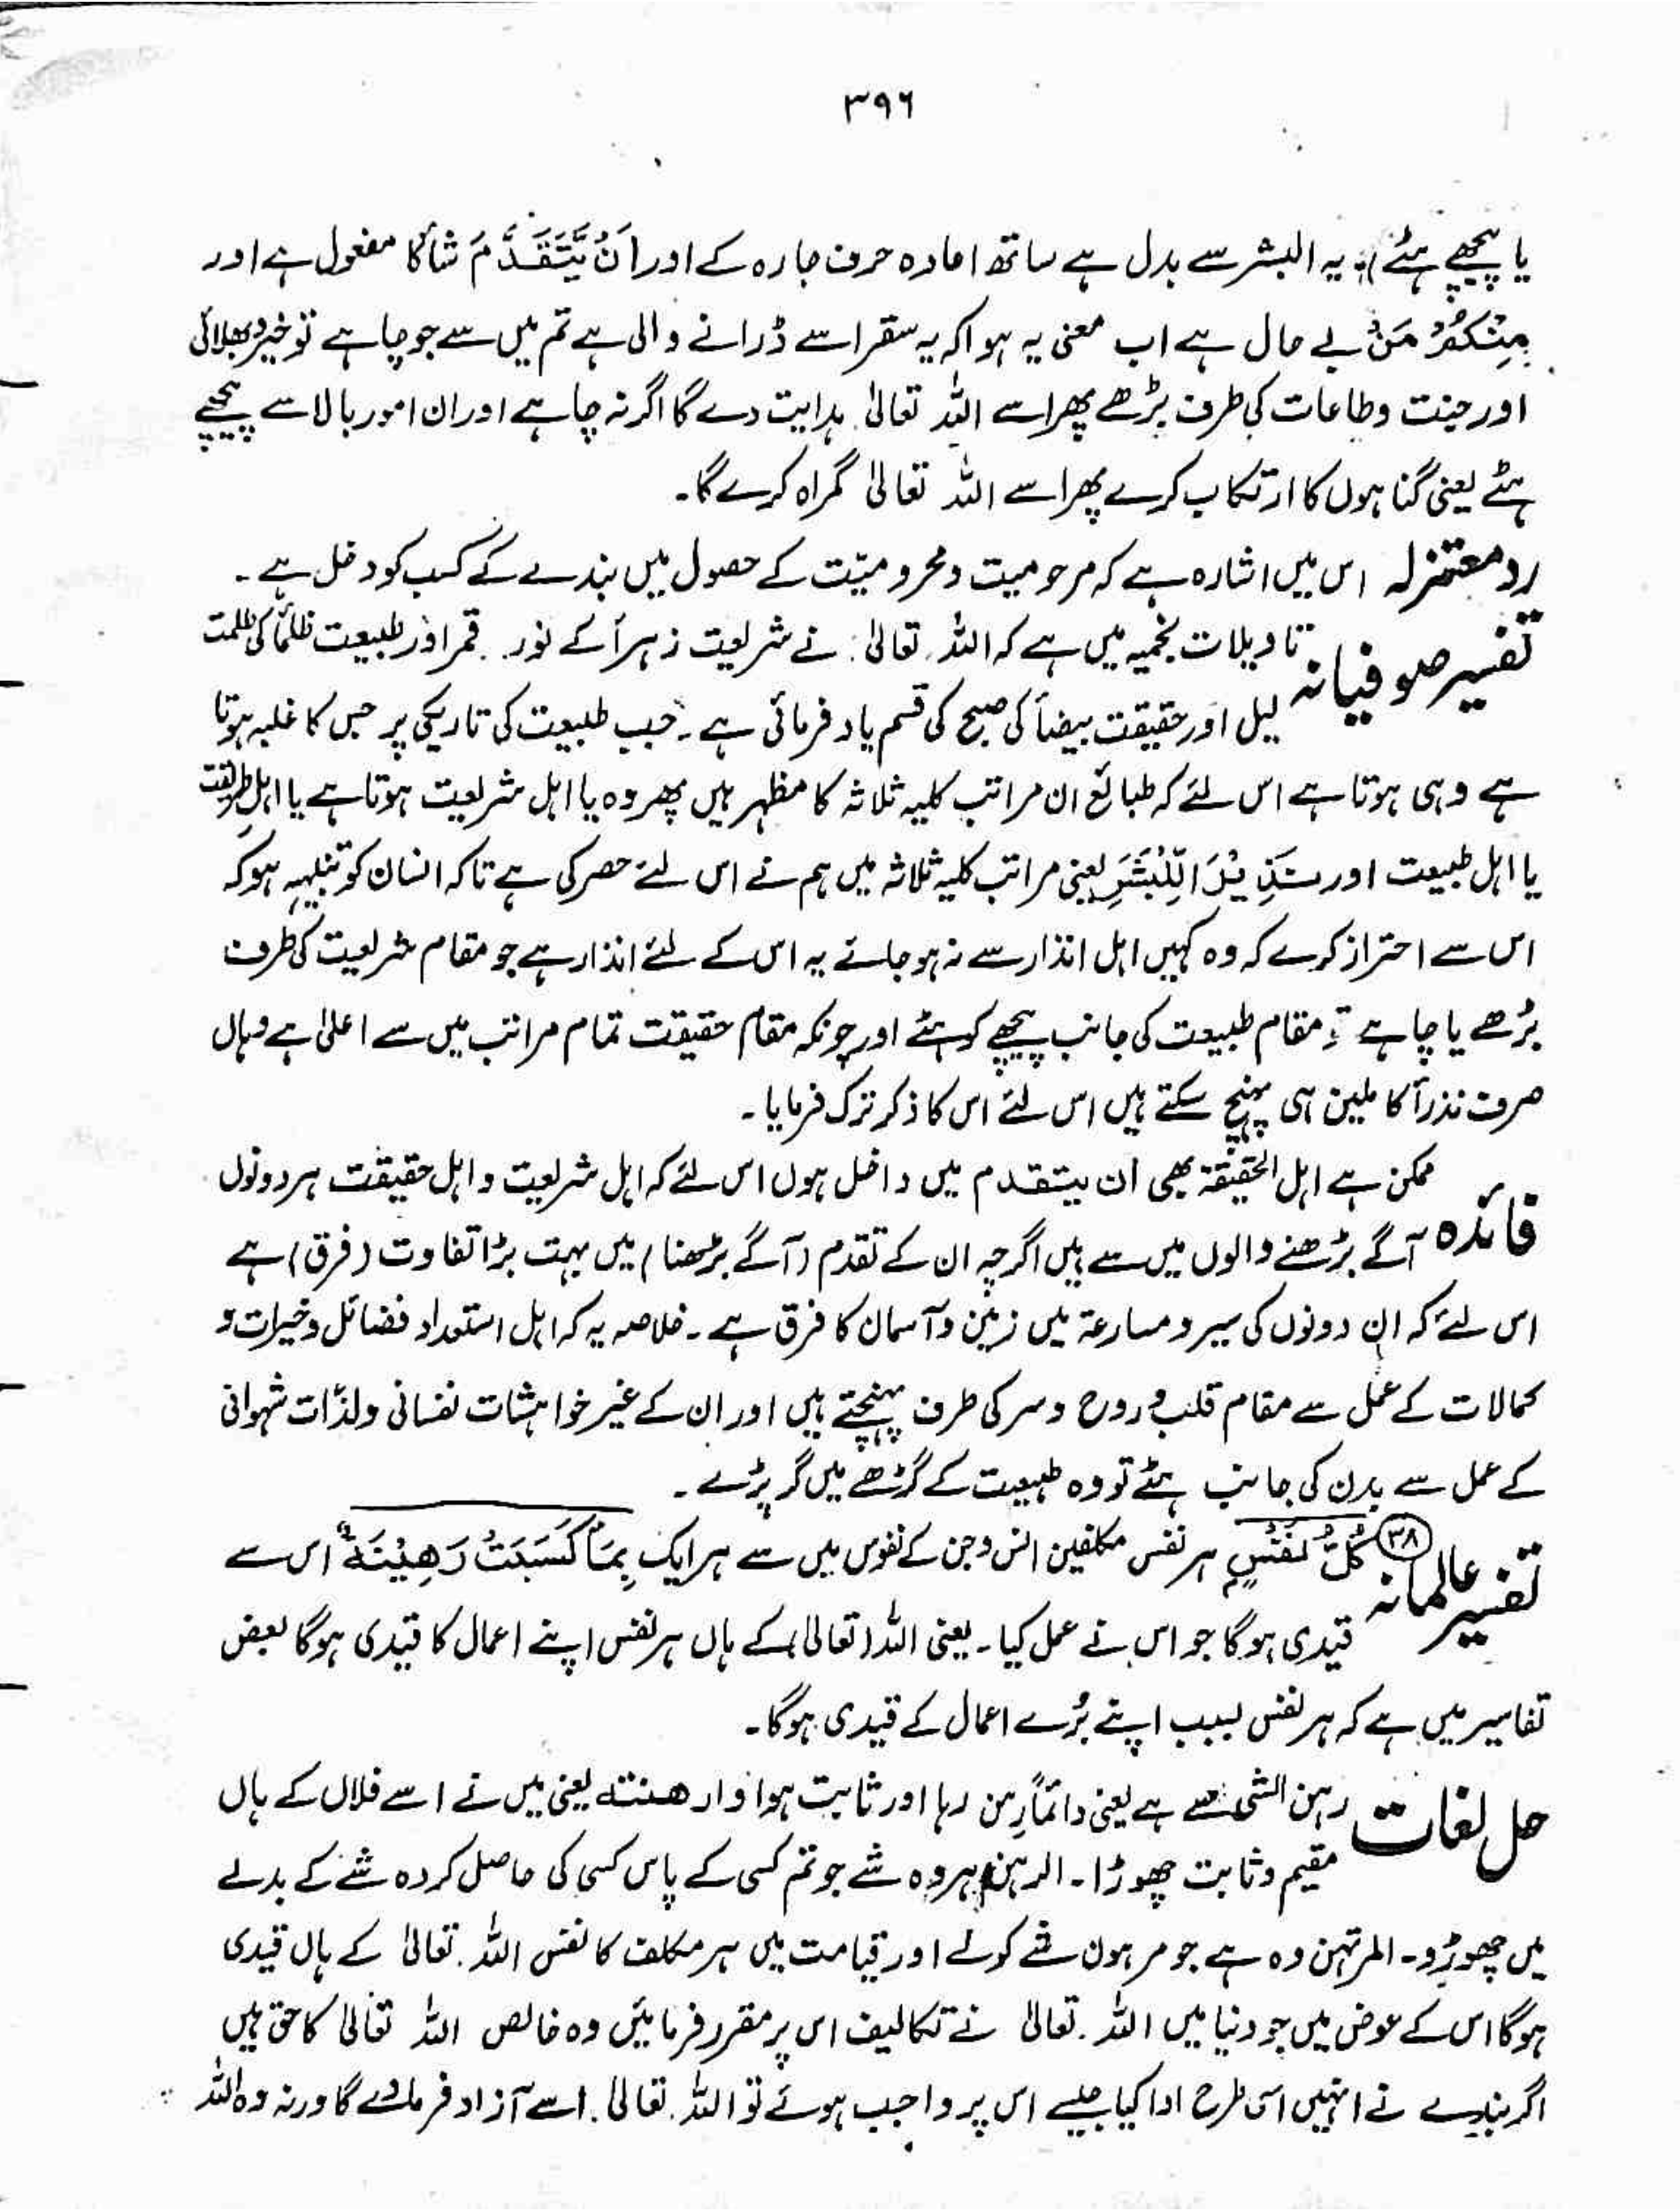 ۳۹۶
یا پیچھے ہٹے)؛ یہ البشر سے بدل ہے ساتھ اعادہ حرف جارہ کے اور اَنْ یَّتَقَدَّمَ شأ کا مفعول ہے اور
مِنْکُمْ مَنْ سے حال ہے اب معنی یہ ہوا کہ یہ سقر اسے ڈرانے والی ہے تم میں سے جو چاہے تو خیر و بھلائی
اور جنت و طاعات کی طرف بڑھے پھر اسے اللہ تعالیٰ ہدایت دے گا اگر نہ چاہے اور ان امور بالا سے پیچھے
ہٹے یعنی گناہوں کا ارتکاب کرے پھر اسے اللہ تعالیٰ گمراہ کرے گا۔
رد معتزلہ اس میں اشارہ ہے کہ مرحومیت و محرومیّت کے حصول میں بندے کے کسب کو دخل ہے۔
تفسیر صوفیانہ تاویلات نجمیہ میں ہے کہ اللہ تعالیٰ نے شریعت زہرأ کے نور قمر اور طبیعت ظلمأ کی ظلمت
لیل اور حقیقت بیضأ کی صبح کی قسم یاد فرمائی ہے۔ جب طبیعت کی تاریکی پر جس کا غلبہ ہوتا
ہے وہی ہوتا ہے اس لئے کہ طبائع ان مراتب کلیہ ثلاثہ کا مظہر ہیں پھر وہ یا اہل شریعت ہوتا ہے یا اہل طریقت
یا اہل طبیعت اور نَذِیْرًا لِّلْبَشَرِ یعنی مراتب کلیہ ثلاثہ میں ہم نے اس لئے حصر کی ہے تاکہ انسان کو تنبیہہ ہو کہ
اس سے احتراز کرے کہ وہ کہیں اہل انذار سے نہ ہو جائے یہ اس کے لئے انذار ہے جو مقام شریعت کی طرف
بڑھے یا چاہے تو مقام طبیعت کی جانب پیچھے کو ہٹے اور چونکہ مقام حقیقت تمام مراتب میں سے اعلیٰ ہے وہاں
صرف نذرأ کاملین ہی پہنچ سکتے ہیں اس لئے اس کا ذکر ترک فرمایا۔
فائدہ ممکن ہے اہل الحقیقۃ بھی ان یتقدم میں داخل ہوں اس لئے کہ اہل شریعت و اہل حقیقت ہر دونوں
آگے بڑھنے والوں میں سے ہیں اگرچہ ان کے تقدم (آگے بڑھنا) میں بہت بڑا تفاوت (فرق) ہے
اس لئے کہ ان دونوں کی سیر و مسارعۃ میں زمین و آسمان کا فرق ہے۔ خلاصہ یہ کہ اہل استعداد فضائل و خیرات و
کمالات کے عمل سے مقام قلب و روح و سر کی طرف پہنچتے ہیں اور ان کے غیر خواہشات نفسانی ولذّات شہوانی
کے عمل سے بدن کی جانب ہٹے تو وہ طبیعت کے گڑھے میں گر پڑے۔
تفسیر عالمانہ ۳۸ کُلُّ نَفْسٍ ہر نفس مکلفین انس وجن کے نفوس میں سے ہر ایک بِمَا کَسَبَتْ رَهِیْنَةٌ اس سے
قیدی ہوگا جو اس نے عمل کیا۔ یعنی اللہ (تعالیٰ) کے ہاں ہر نفس اپنے اعمال کا قیدی ہوگا بعض
تفاسیر میں ہے کہ ہر نفس بسبب اپنے بُرے اعمال کے قیدی ہوگا۔
حل لغات رہن الشی سے ہے یعنی دائمًا رہن رہا اور ثابت ہوا وارهنته یعنی میں نے اسے فلاں کے ہاں
مقیم و ثابت چھوڑا۔ الرہن ہر وہ شے جو تم کسی کے پاس کسی کی حاصل کردہ شئے کے بدلے
میں چھوڑو۔ المرتہن وہ ہے جو مرہون شے کو لے اور قیامت میں ہر مکلف کا نفس اللہ تعالیٰ کے ہاں قیدی
ہوگا اس کے عوض میں جو دنیا میں اللہ تعالیٰ نے تکالیف اس پر مقرر فرمائیں وہ خالص اللہ تعالیٰ کا حق ہیں
اگر بندے نے انہیں اسی طرح ادا کیا جیسے اس پر واجب ہوئے تو اللہ تعالیٰ اسے آزاد فرما دے گا ورنہ وہ اللہ